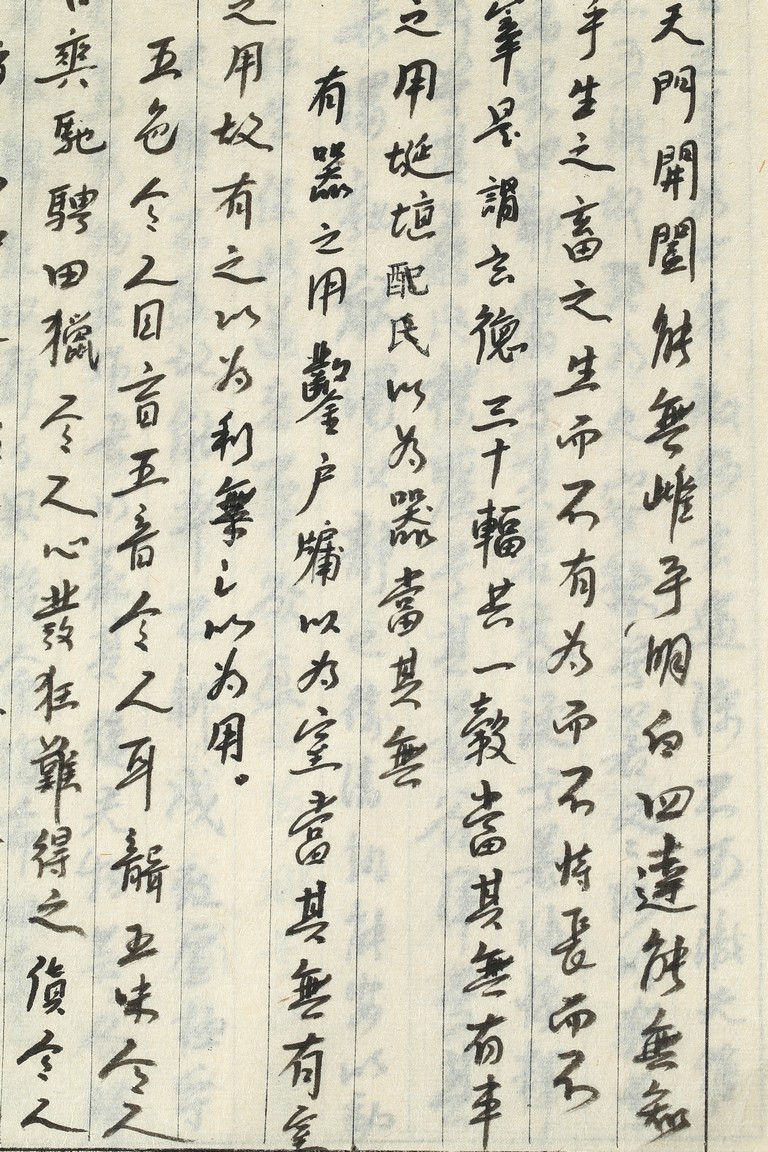 天門開闔能無雌乎明白四達能無知
乎生之畜之生而不有為而不恃長而不
宰是謂玄德三十輻共一轂當其無有車
之用埏埴配民以為器當其無
有器之用鑿戶牖以為室當其無有室
之用故有之以為利無之以為用。
五色令人目盲五音令人耳聾五味令人
口爽馳騁田獵令人心發狂難得之貨令人